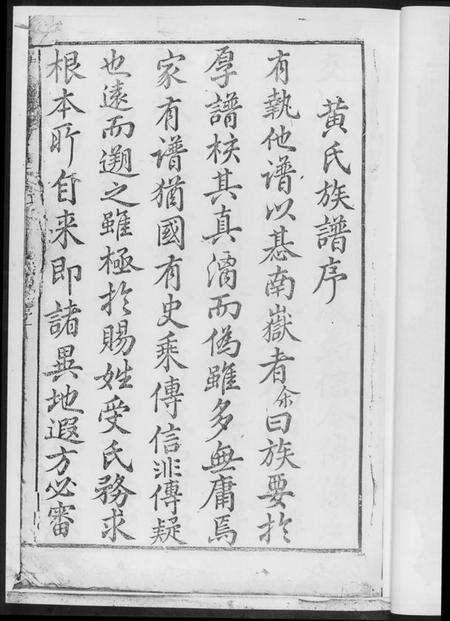 黃氏族譜序
有執他譜以惎南嶽者余曰族要扵
厚譜核其真濡而偽雖多無庸焉
家有譜猶國有史乘傳信非傳疑
也遠而遡之雖極扵賜姓受氏務求
根本所自来即諸異地遐方必審